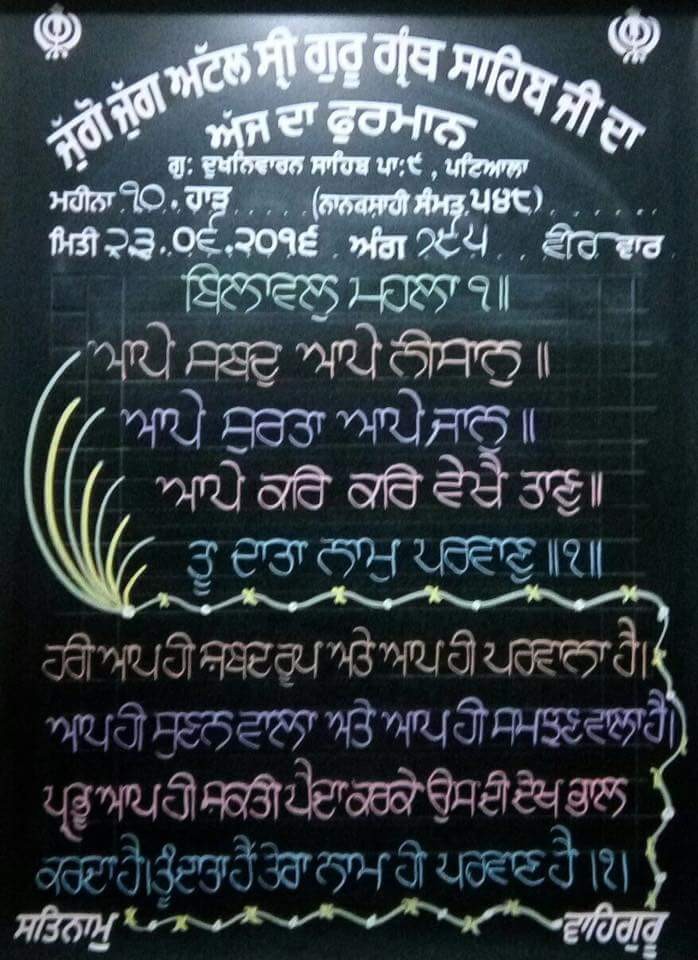 ਜੁੱਗੋ ਜੁੱਗ ਅਟੱਲ ਸ੍ਰੀ ਗੁਰੂ ਗ੍ਰੰਥ ਸਾਹਿਬ ਜੀ ਦਾ
ਅੱਜ ਦਾ ਫੁਰਮਾਨ
ਗੁ: ਦੁਖਨਿਵਾਰਨ ਸਾਹਿਬ ਪਾ:੯ , ਪਟਿਆਲਾ
ਮਹੀਨਾ ੧੦. ਹਾੜ (ਨਾਨਕਸ਼ਾਹੀ ਸੰਮਤ ੫੪੮)
ਮਿਤੀ ੨੩.੦੬.੨੦੧੬ ਅੰਗ ੭੯੫ ਵੀਰ ਵਾਰ
ਬਿਲਾਵਲੁ ਮਹਲਾ ੧॥
ਆਪੇ ਸਬਦੁ ਆਪੇ ਨੀਸਾਨੁ ॥
ਆਪੇ ਸੁਰਤਾ ਆਪੇ ਜਾਨੁ ॥
ਆਪੇ ਕਰਿ ਕਰਿ ਵੇਖੈ ਤਾਣੁ ॥
ਤੂ ਦਾਤਾ ਨਾਮੁ ਪਰਵਾਣੁ ॥੧॥
ਹਰੀ ਆਪ ਹੀ ਸਬਦ ਰੂਪ ਅਤੇ ਆਪ ਹੀ ਪਰਵਾਨਾ ਹੈ।
ਆਪ ਹੀ ਸੁਣਨ ਵਾਲਾ ਅਤੇ ਆਪ ਹੀ ਸਮਝਣ ਵਾਲਾ ਹੈ।
ਪ੍ਰਭੂ ਆਪ ਹੀ ਸਕਤੀ ਪੈਦਾ ਕਰਕੇ ਉਸ ਦੀ ਦੇਖ ਭਾਲ
ਕਰਦਾ ਹੈ। ਤੂੰ ਦਾਤਾ ਹੈਂ ਤੇਰਾ ਨਾਮ ਹੀ ਪਰਵਾਣ ਹੈ।੧।
ਸਤਿਨਾਮੁ ਵਾਹਿਗੁਰੂ